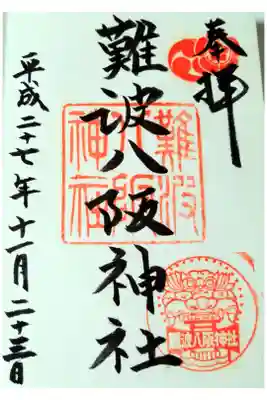 奉拝
難波八阪神社
平成二十七年十一月二十三日
難波八阪神社
難波八阪神社